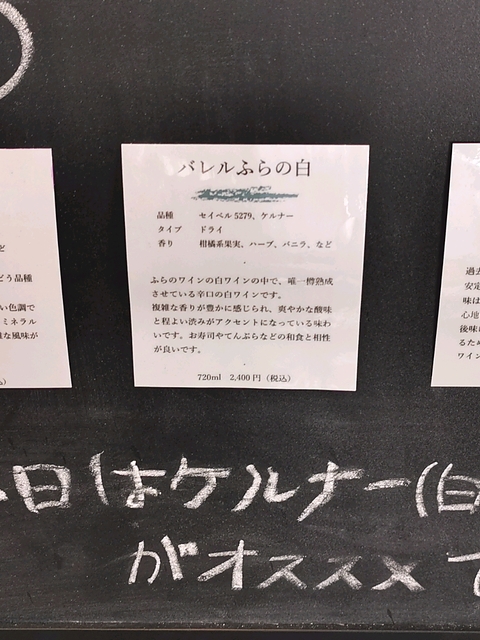 バレルふらの白
品種 セイベル5279、ケルナー
タイプ ドライ
香り 柑橘系果実、ハーブ、バニラ、など
ふらのワインの白ワインの中で、唯一樽熟成
させている辛口の白ワインです。
複雑な香りが豊かに感じられ、爽やかな酸味
と程よい渋みがアクセントになっている味わ
いです。お寿司やてんぷらなどの和食と相性
が良いです。
720ml 2,400円（税込）
ど
どう品種
い色調で
ミネラル
な風味が
過去
安定
味は
心地
後味
るため
ワイン
日はケルナー(白
がオススメ